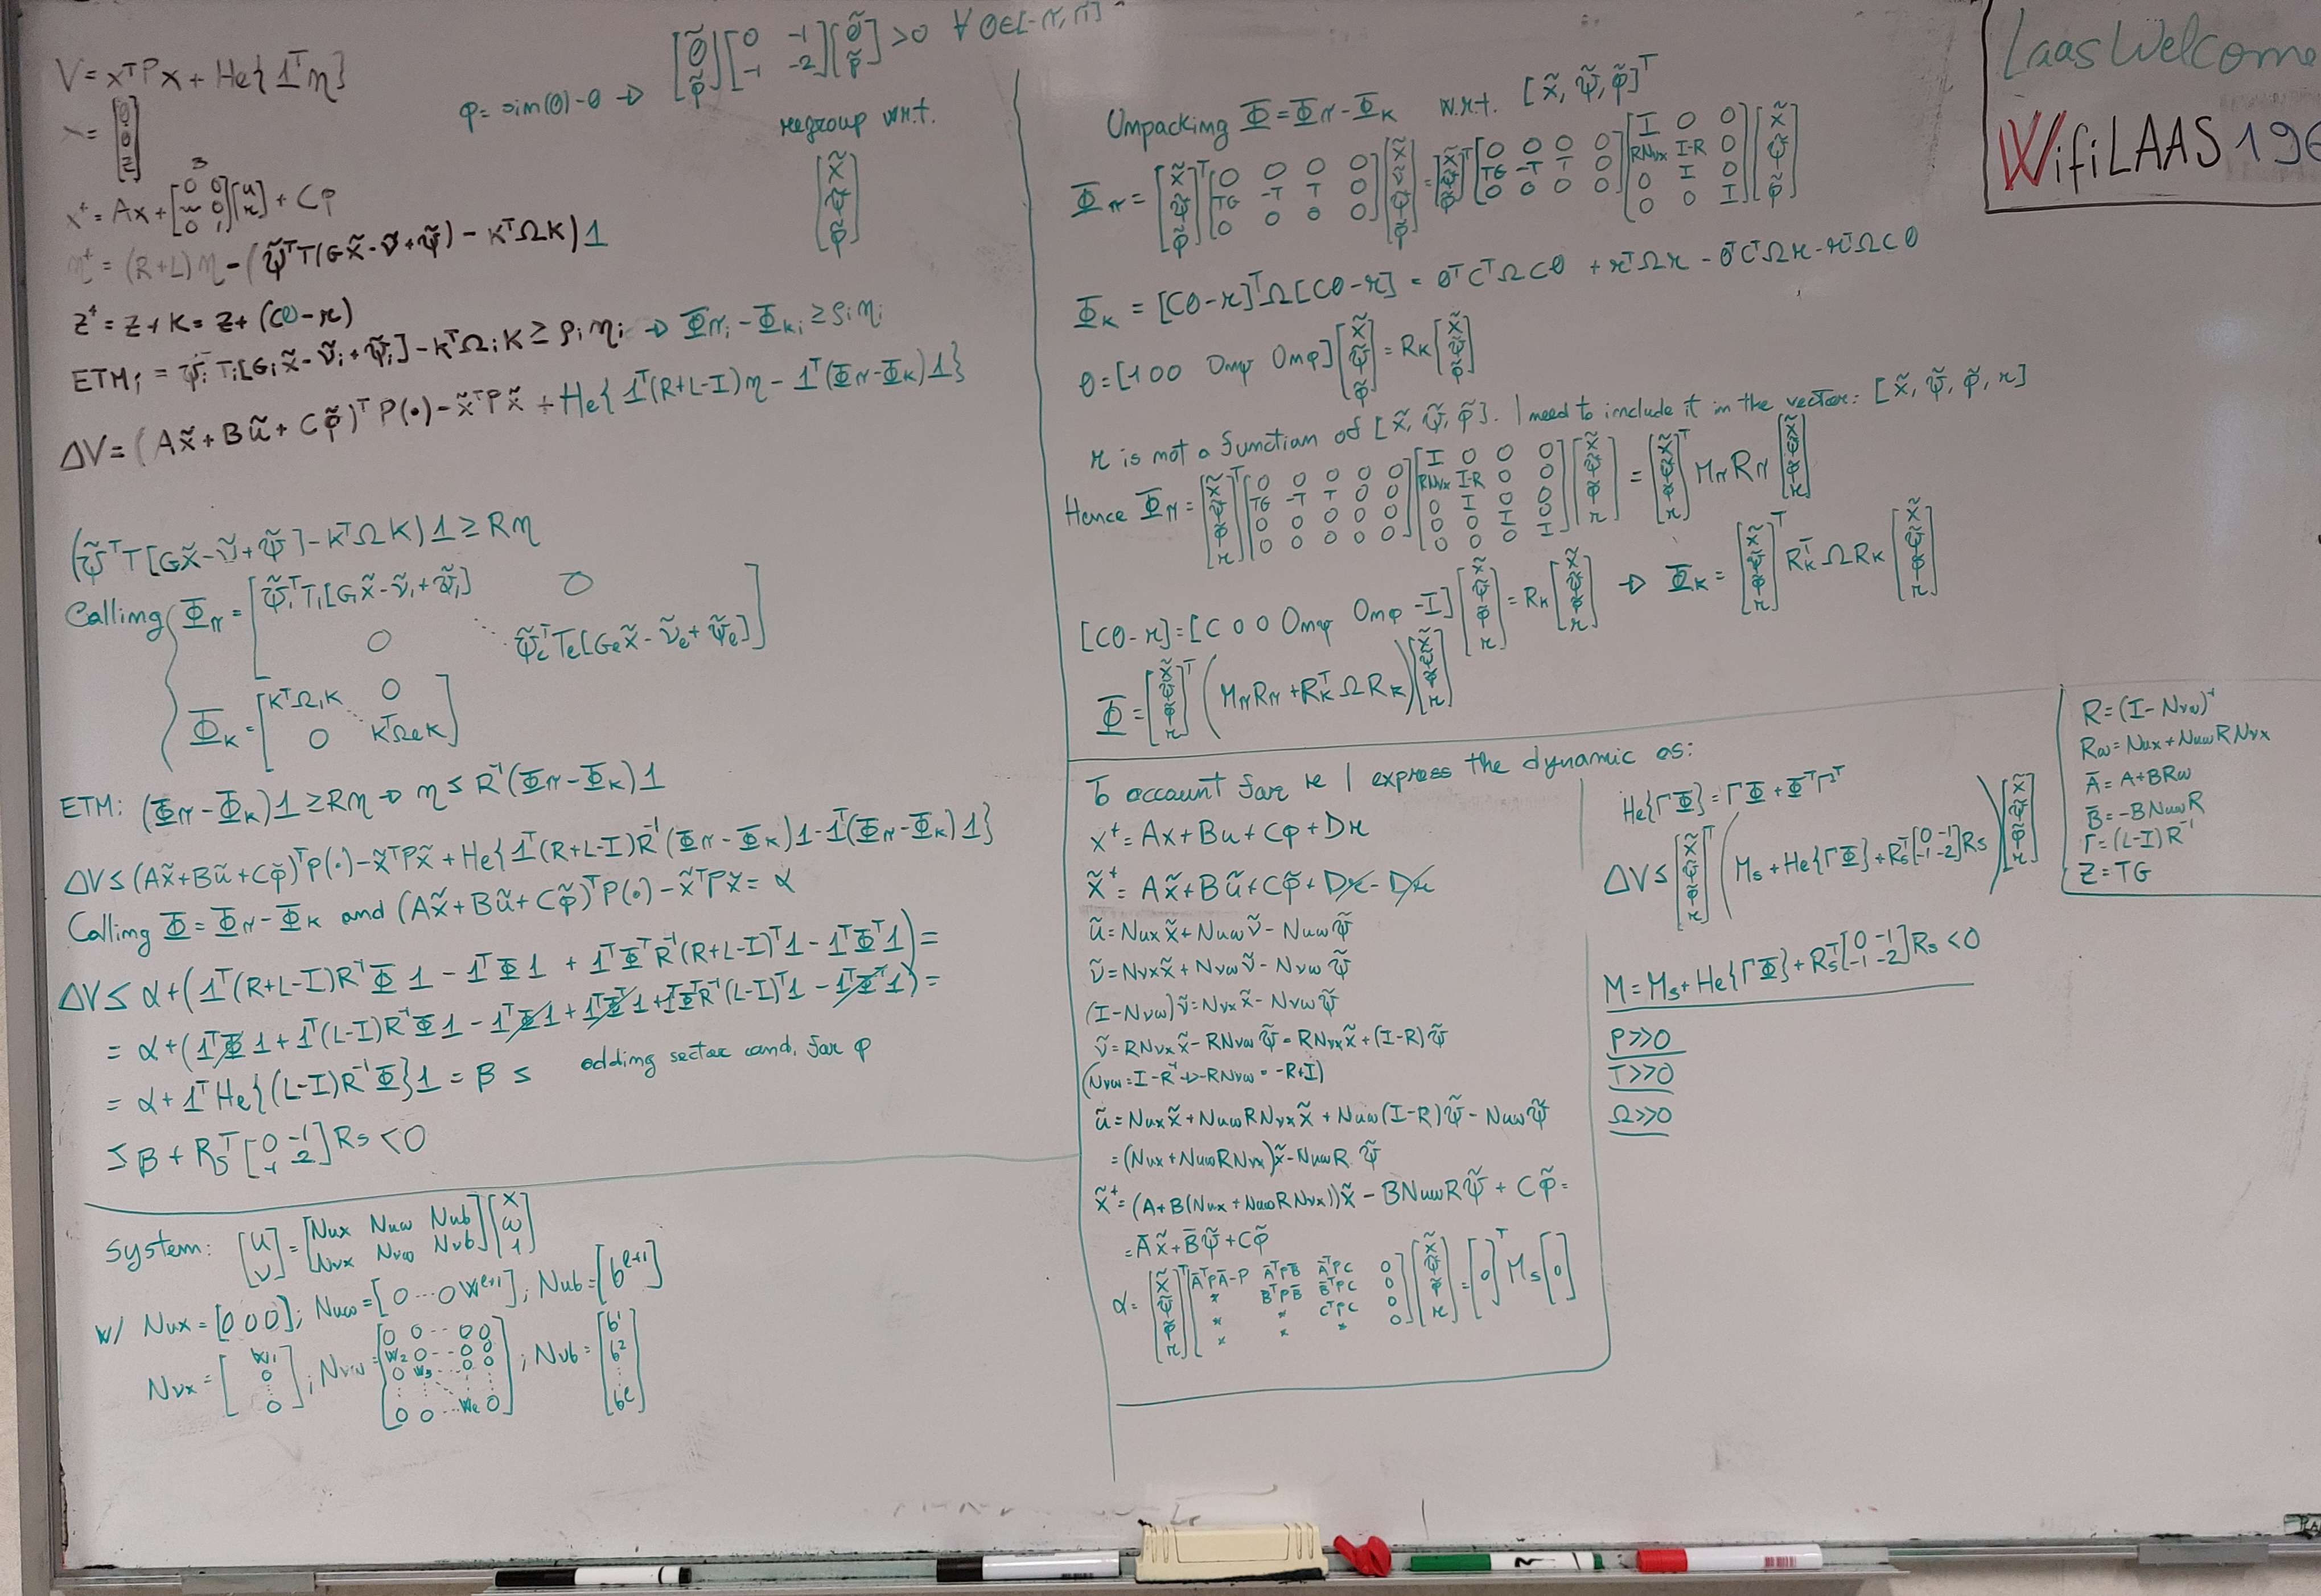 V = xᵀPx + He{1ᵀη}
x = [θ θ̇ z]
φ = sin(θ)-θ → [θ̃ φ̃][0 -1; -1 -2][θ̃ φ̃] > 0 ∀ θ∈[-π, π]
regroup w.r.t.
[x̃ ψ̃ φ̃]
x⁺ = Ax + [u r] + Cφ
η⁺ = (R+L)η - (ψ̃ᵀT(Gx̃-ν̃+ψ̃) - KᵀΩK)1
z⁺ = z + K = z + (Cθ-r)
ETMᵢ = ψ̃ᵢᵀTᵢ[Gᵢx̃-ν̃ᵢ+ψ̃ᵢ] - KᵀΩᵢK ≥ ρᵢηᵢ → Φπᵢ - Φκᵢ ≥ ρᵢηᵢ
ΔV = (Ax̃ + Bũ + Cφ̃)ᵀP(•) - x̃ᵀPx̃ + He{1ᵀ(R+L-I)η - 1ᵀ(Φπ-Φκ)1}
(ψ̃ᵀT[Gx̃-ν̃+ψ̃] - KᵀΩK)1 ≥ Rη
Calling { Φπ = [ψ̃₁ᵀT₁[G₁x̃-ν̃₁+ψ̃₁] 0
0 ⋱ ψ̃ₑᵀTₑ[Gₑx̃-ν̃ₑ+ψ̃ₑ]]
Φκ = [KᵀΩ₁K 0
0 ⋱ KᵀΩₑK]
ETM: (Φπ-Φκ)1 ≥ Rη → η ≤ R⁻¹(Φπ-Φκ)1
ΔV ≤ (Ax̃+Bũ+Cφ̃)ᵀP(•) - x̃ᵀPx̃ + He{1ᵀ(R+L-I)R⁻¹(Φπ-Φκ)1 - 1ᵀ(Φπ-Φκ)1}
Calling Φ = Φπ-Φκ and (Ax̃+Bũ+Cφ̃)ᵀP(•) - x̃ᵀPx̃ = α
ΔV ≤ α + (1ᵀ(R+L-I)R⁻¹Φ1 - 1ᵀΦ1 + 1ᵀΦᵀR⁻¹(R+L-I)ᵀ1 - 1ᵀΦᵀ1) =
= α + (1ᵀΦ1 + 1ᵀ(L-I)R⁻¹Φ1 - 1ᵀΦ1 + 1ᵀΦᵀ1 + 1ᵀΦᵀR⁻¹(L-I)ᵀ1 - 1ᵀΦᵀ1) =
= α + 1ᵀHe{(L-I)R⁻¹Φ}1 = β ≤ adding sector cond. for φ
≤ β + Rsᵀ[0 -1; -1 -2]Rs < 0
System: [u ν] = [Nux Nuω Nub; Nνx Nνω Nνb][x ω 1]
w/ Nux = [0 0 0]; Nuω = [0 ⋯ 0 Wᵉ⁺¹]; Nub = [bᵉ⁺¹]
Nνx = [W₁ 0 ⋮ 0]; Nνω = [0 0 ⋯ 0 0; W₂ 0 ⋯ 0 0; 0 W₃ ⋯ 0 0; ⋮; 0 0 ⋯ Wₑ 0]; Nνb = [b¹ b² ⋮ bᵉ]
Unpacking Φ = Φπ-Φκ w.r.t. [x̃, ψ̃, φ̃]ᵀ
Φπ = [x̃ ψ̃ φ̃]ᵀ[0 0 0 0; TG -T T 0; 0 0 0 0][x̃ ν̃ ψ̃ φ̃] = [x̃ ψ̃ φ̃]ᵀ[0 0 0 0; TG -T T 0; 0 0 0 0][I 0 0; RNνx I-R 0; 0 I 0; 0 0 I][x̃ ψ̃ φ̃]
Φκ = [Cθ-r]ᵀΩ[Cθ-r] = θᵀCᵀΩCθ + rᵀΩr - θᵀCᵀΩr - rᵀΩCθ
θ = [1 0 0 0mψ 0mφ][x̃ ψ̃ φ̃] = Rκ[x̃ ψ̃ φ̃]
r is not a function of [x̃, ψ̃, φ̃]. I need to include it in the vector: [x̃, ψ̃, φ̃, r]
Hence Φπ = [x̃ ψ̃ φ̃ r]ᵀ[0 0 0 0 0; TG -T T 0 0; 0 0 0 0 0; 0 0 0 0 0][I 0 0 0; RNνx I-R 0 0; 0 I 0 0; 0 0 I 0; 0 0 0 I][x̃ ψ̃ φ̃ r] = [x̃ ψ̃ φ̃ r]ᵀ Mπ Rπ [x̃ ψ̃ φ̃ r]
[Cθ-r] = [C 0 0 0mψ 0mφ -I][x̃ ψ̃ φ̃ r] = Rκ[x̃ ψ̃ φ̃ r] → Φκ = [x̃ ψ̃ φ̃ r]ᵀ RκᵀΩRκ [x̃ ψ̃ φ̃ r]
Φ = [x̃ ψ̃ φ̃ r]ᵀ(MπRπ + RκᵀΩRκ)[x̃ ψ̃ φ̃ r]
To account for r I express the dynamic as:
x⁺ = Ax + Bu + Cφ + Dr
x̃⁺ = Ax̃ + Bũ + Cφ̃ + Dr - Dr
ũ = Nuxx̃ + Nuων̃ - Nuωψ̃
ν̃ = Nνxx̃ + Nνων̃ - Nνωψ̃
(I-Nνω)ν̃ = Nνxx̃ - Nνωψ̃
ν̃ = RNνxx̃ - RNνωψ̃ = RNνxx̃ + (I-R)ψ̃
(Nνω = I-R⁻¹ → -RNνω = -R+I)
ũ = Nuxx̃ + NuωRNνxx̃ + Nuω(I-R)ψ̃ - Nuωψ̃
= (Nux + NuωRNνx)x̃ - NuωRψ̃
x̃⁺ = (A+B(Nux+NuωRNνx))x̃ - BNuωRψ̃ + Cφ̃ =
= Āx̃ + B̄ψ̃ + Cφ̃
α = [x̃ ψ̃ φ̃ r]ᵀ[ĀᵀPĀ-P ĀᵀPB̄ ĀᵀPC 0; * B̄ᵀPB̄ B̄ᵀPC 0; * * CᵀPC 0; * * * 0][x̃ ψ̃ φ̃ r] = [∘]ᵀMs[∘]
He{ΓΦ} = ΓΦ + ΦᵀΓᵀ
ΔV ≤ [x̃ ψ̃ φ̃ r]ᵀ(Ms + He{ΓΦ} + Rsᵀ[0 -1; -1 -2]Rs)[x̃ ψ̃ φ̃ r]
M = Ms + He{ΓΦ} + Rsᵀ[0 -1; -1 -2]Rs < 0
P>>0
T>>0
Ω>>0
R = (I-Nνω)⁻¹
Rω = Nux + NuωRNνx
Ā = A+BRω
B̄ = -BNuωR
Γ = (L-I)R⁻¹
Z = TG
LaasWelcome
WifiLAAS196